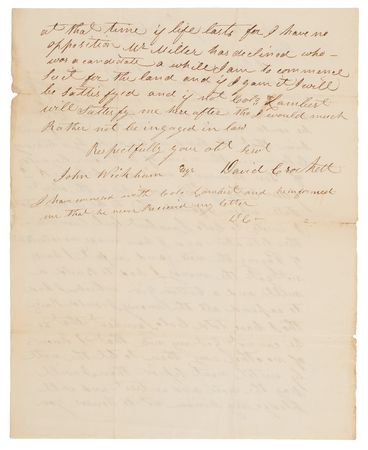 at that time if life lasts for I have no
opposition Mr Miller has declined who
was a candidate a while I am to commence
Suit for the land and if I gain it I will
be sattisfyed and if not Colo
will sattisfy me here after tho I would much
Rather not be ingaged in law
Respectfully your obt servt
John Wickham Esqr David Crockett
I have
me that he never Received my letter
DC